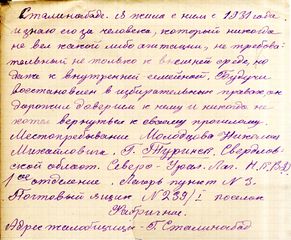 Сталинабаде. Я жила с ним с 1931 года
и знаю его за человека, который никогда
не вел какой либо агитации, не требова-
тельный не только к внешней среде, но
даже к внутренней семейной. Будучи
восстановлен в избирательных правах он
дорожил доверием к нему и никогда не
хотел вернуться к своему прошлому.
Местопребование Молодцова Николая
Михайловича, г. Туринск, Свердлов-
ской област. Северо-Урал. Лаг. Н.К.В.Д.
1ое отделение. Лагерь пункт № 3.
Почтовый ящик № 239/I поселок
Фабричное.
Адрес жалобщицы - г. Сталинабад